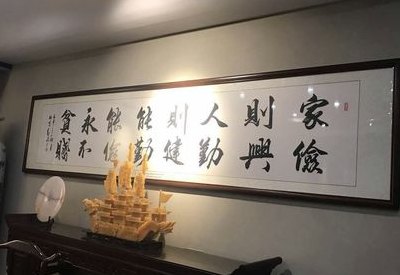 家儉
則興
人勤
則健
能勤
能儉
永不
貧賤